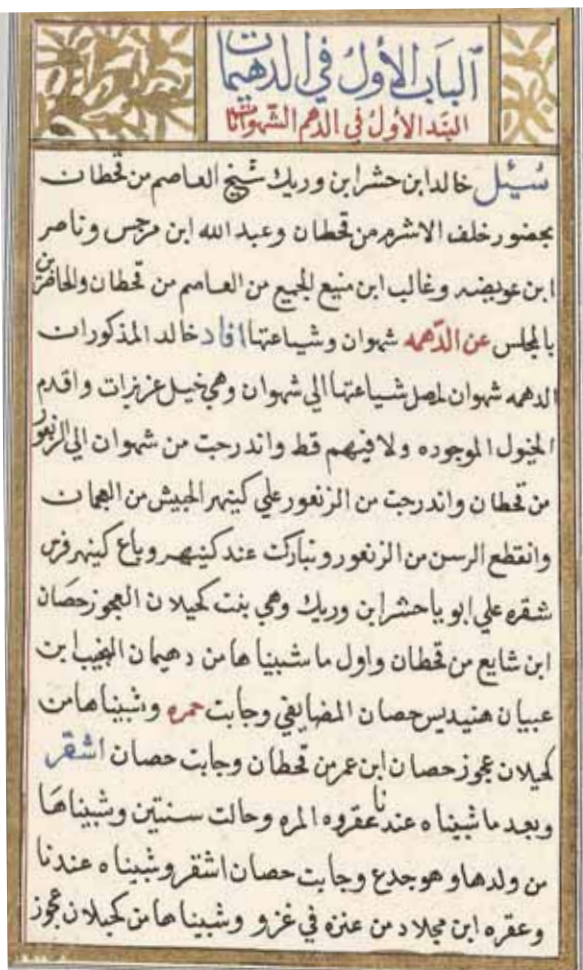 الباب الأول في الدهيمات
البند الأول في الدهم الشهوانات
سُئِل خالد ابن حشر ابن وريك شيخ العاصم من قحطان
بحضور خلف الاشرم من قحطان وعبد الله ابن مرجس وناصر
ابن عويضه وغالب ابن منيع الجميع من العاصم من قحطان والحاضرين
بالمجلس عن الدّهمه شهوان وشياعتها افاد خالد المذكورات
الدهمه شهوان لصل شياعتها الي شهوان وهي خيل عزيزات واقدم
الخيول الموجوده ولا فيهم قط واندرجت من شهوان الي الزنغور
من قحطان واندرجت من الزنغور علي كنيهر الجيش من العجمان
وانقطع الرسن من الزنغور وتباركت عند كنيهر وباع كنيهر فرس
شقره علي ابويا حشر ابن وريك وهي بنت كحيلان العجوز حصان
ابن شايع من قحطان واول ما شبيناها من دهيمان النجيب ابن
عبيان هنيديس حصان المضايفي وجابت حمره وشبيناها من
كحيلان عجوز حصان ابن عمر من قحطان وجابت حصان اشقر
وبعد ما شبيناه عندنا عقروه المره وحالت سنتين وشبيناها
من ولدها وهو جدع وجابت حصان اشقر وشبيناه عندنا
وعقره ابن مجلاد من عنزه في غزو وشبيناها من كحيلان عجوز